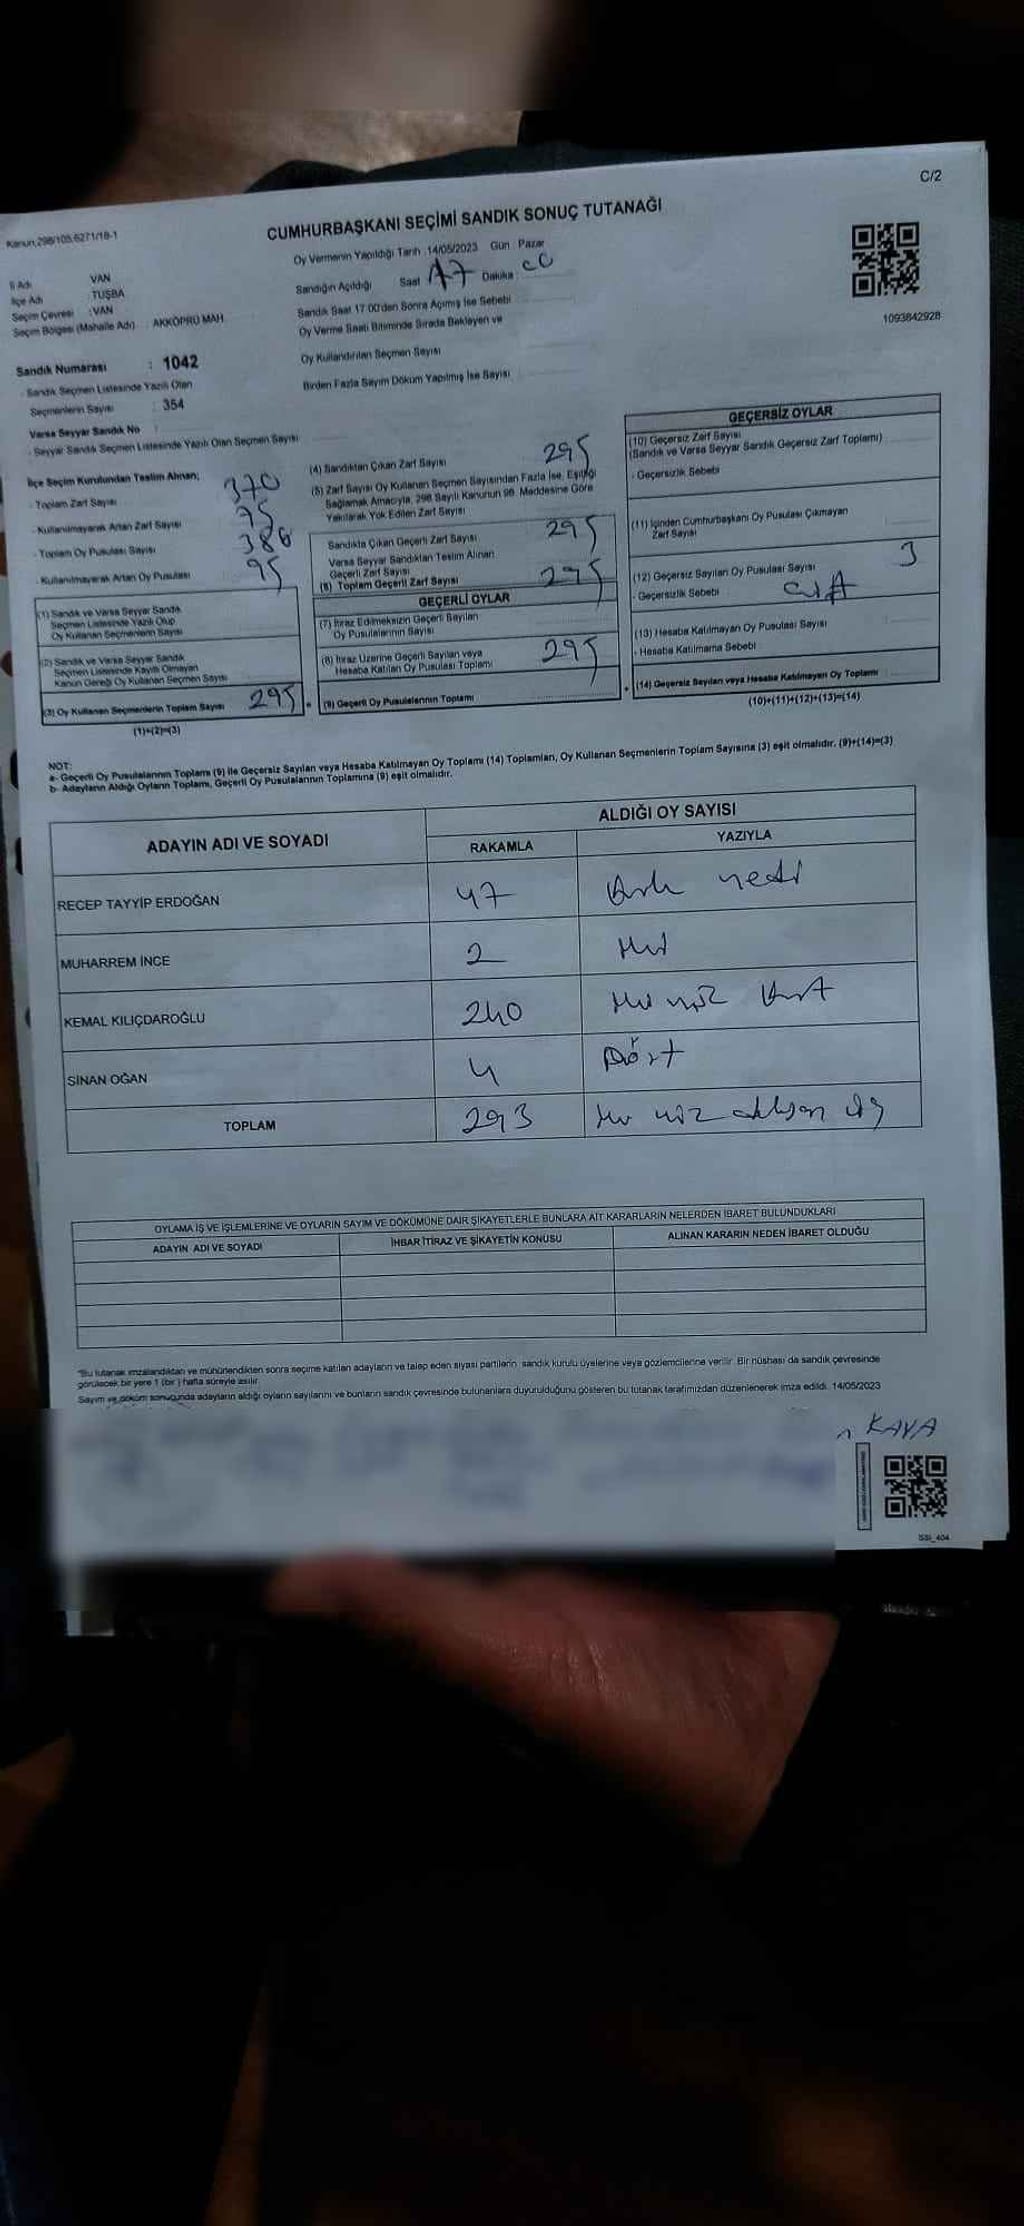 C/2
Kanun,298/105,6271/18-1
CUMHURBAŞKANI SEÇİMİ SANDIK SONUÇ TUTANAĞI
Oy Vermenin Yapıldığı Tarih : 14/05/2023 Gün : Pazar
Sandığın Açıldığı Saat 17 Dakika : 00
Sandık Saat 17:00'den Sonra Açılmış İse Sebebi
Oy Verme Saati Bitiminde Sırada Bekleyen ve
Oy Kullandırılan Seçmen Sayısı
Birden Fazla Sayım Döküm Yapılmış İse Sayısı
İl Adı VAN
İlçe Adı TUŞBA
Seçim Çevresi :VAN
Seçim Bölgesi (Mahalle Adı) : AKKÖPRÜ MAH.
1093842928
Sandık Numarası : 1042
- Sandık Seçmen Listesinde Yazılı Olan
Seçmenlerin Sayısı : 354
Varsa Seyyar Sandık No :
- Seyyar Sandık Seçmen Listesinde Yazılı Olan Seçmen Sayısı
İlçe Seçim Kurulundan Teslim Alınan;
- Toplam Zarf Sayısı 370
- Kullanılmayarak Artan Zarf Sayısı 75
- Toplam Oy Pusulası Sayısı 386
- Kullanılmayarak Artan Oy Pusulası 95
(1) Sandık ve Varsa Seyyar Sandık
Seçmen Listesinde Yazılı Olup
Oy Kullanan Seçmenlerin Sayısı
(2) Sandık ve Varsa Seyyar Sandık
Seçmen Listesinde Kayıtlı Olmayan
Kanun Gereği Oy Kullanan Seçmen Sayısı
(3) Oy Kullanan Seçmenlerin Toplam Sayısı 295
(1)+(2)=(3)
(4) Sandıktan Çıkan Zarf Sayısı 295
(5) Zarf Sayısı Oy Kullanan Seçmen Sayısından Fazla İse, Eşitliği
Sağlamak Amacıyla, 298 Sayılı Kanunun 98. Maddesine Göre
Yakılarak Yok Edilen Zarf Sayısı
Sandıkta Çıkan Geçerli Zarf Sayısı 295
Varsa Seyyar Sandıktan Teslim Alınan
Geçerli Zarf Sayısı
(6) Toplam Geçerli Zarf Sayısı 295
GEÇERLİ OYLAR
(7) İtiraz Edilmeksizin Geçerli Sayılan
Oy Pusulalarının Sayısı
(8) İtiraz Üzerine Geçerli Sayılan veya
Hesaba Katılan Oy Pusulası Toplamı 295
(9) Geçerli Oy Pusulalarının Toplamı
GEÇERSİZ OYLAR
(10) Geçersiz Zarf Sayısı
(Sandık ve Varsa Seyyar Sandık Geçersiz Zarf Toplamı)
- Geçersizlik Sebebi
(11) İçinden Cumhurbaşkanı Oy Pusulası Çıkmayan
Zarf Sayısı
(12) Geçersiz Sayılan Oy Pusulası Sayısı 3
- Geçersizlik Sebebi
(13) Hesaba Katılmayan Oy Pusulası Sayısı
- Hesaba Katılmama Sebebi
(14) Geçersiz Sayılan veya Hesaba Katılmayan Oy Toplamı
(10)+(11)+(12)+(13)=(14)
NOT:
a- Geçerli Oy Pusulalarının Toplamı (9) ile Geçersiz Sayılan veya Hesaba Katılmayan Oy Toplamı (14) Toplamları, Oy Kullanan Seçmenlerin Toplam Sayısına (3) eşit olmalıdır. (9)+(14)=(3)
b- Adayların Aldığı Oyların Toplamı, Geçerli Oy Pusulalarının Toplamına (9) eşit olmalıdır.
ADAYIN ADI VE SOYADI ALDIĞI OY SAYISI
RAKAMLA YAZIYLA
RECEP TAYYİP ERDOĞAN 47 kırk yedi
MUHARREM İNCE 2 iki
KEMAL KILIÇDAROĞLU 240 iki yüz kırk
SİNAN OĞAN 4 Dört
TOPLAM 293 iki yüz doksan üç
OYLAMA İŞ VE İŞLEMLERİNE VE OYLARIN SAYIM VE DÖKÜMÜNE DAİR ŞİKAYETLERLE BUNLARA AİT KARARLARIN NELERDEN İBARET BULUNDUKLARI
ADAYIN ADI VE SOYADI İHBAR İTİRAZ VE ŞİKAYETİN KONUSU ALINAN KARARIN NEDEN İBARET OLDUĞU
"Bu tutanak imzalandıktan ve mühürlendikten sonra seçime katılan adayların ve talep eden siyasi partilerin sandık kurulu üyelerine veya gözlemcilerine verilir. Bir nüshası da sandık çevresinde
görülecek bir yere 1 (bir ) hafta süreyle asılır.
Sayım ve döküm sonucunda adayların aldığı oyların sayılarını ve bunların sandık çevresinde bulunanlara duyurulduğunu gösteren bu tutanak tarafımızdan düzenlenerek imza edildi. 14/05/2023
KAYA